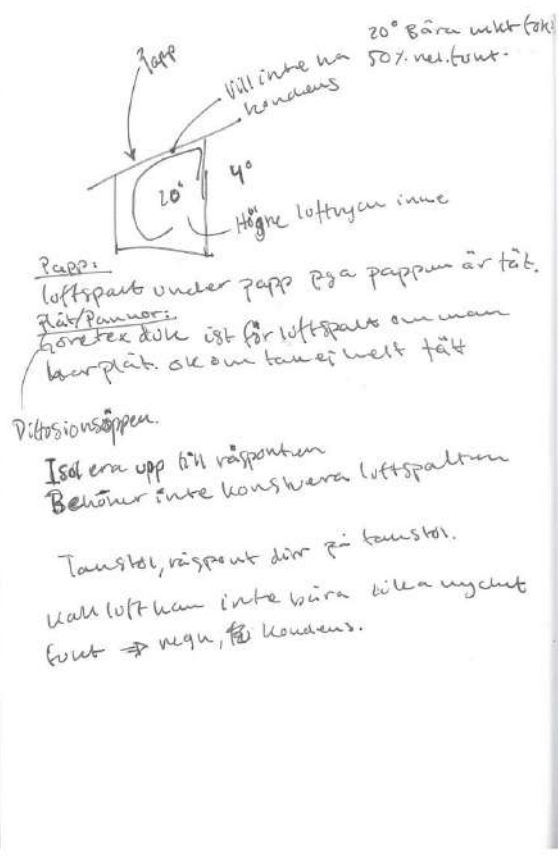 20° Bära mkt fukt
50% rel. fukt.
Papp
Vill inte ha
kondens
20°
4°
Högre luftryck inne
Papp:
luftspalt under papp pga pappen är tät.
Plåt/Pannor:
Goretex duk ist för luftspalt om man
har plåt. ok om tak ej helt tätt
Diffusionsöppen.
Isolera upp till råsponten
Behöver inte konstruera luftspalten
Takstol, råspont på takstol.
Kall luft kan inte bära lika mycket
fukt ⇒ regn, kondens.